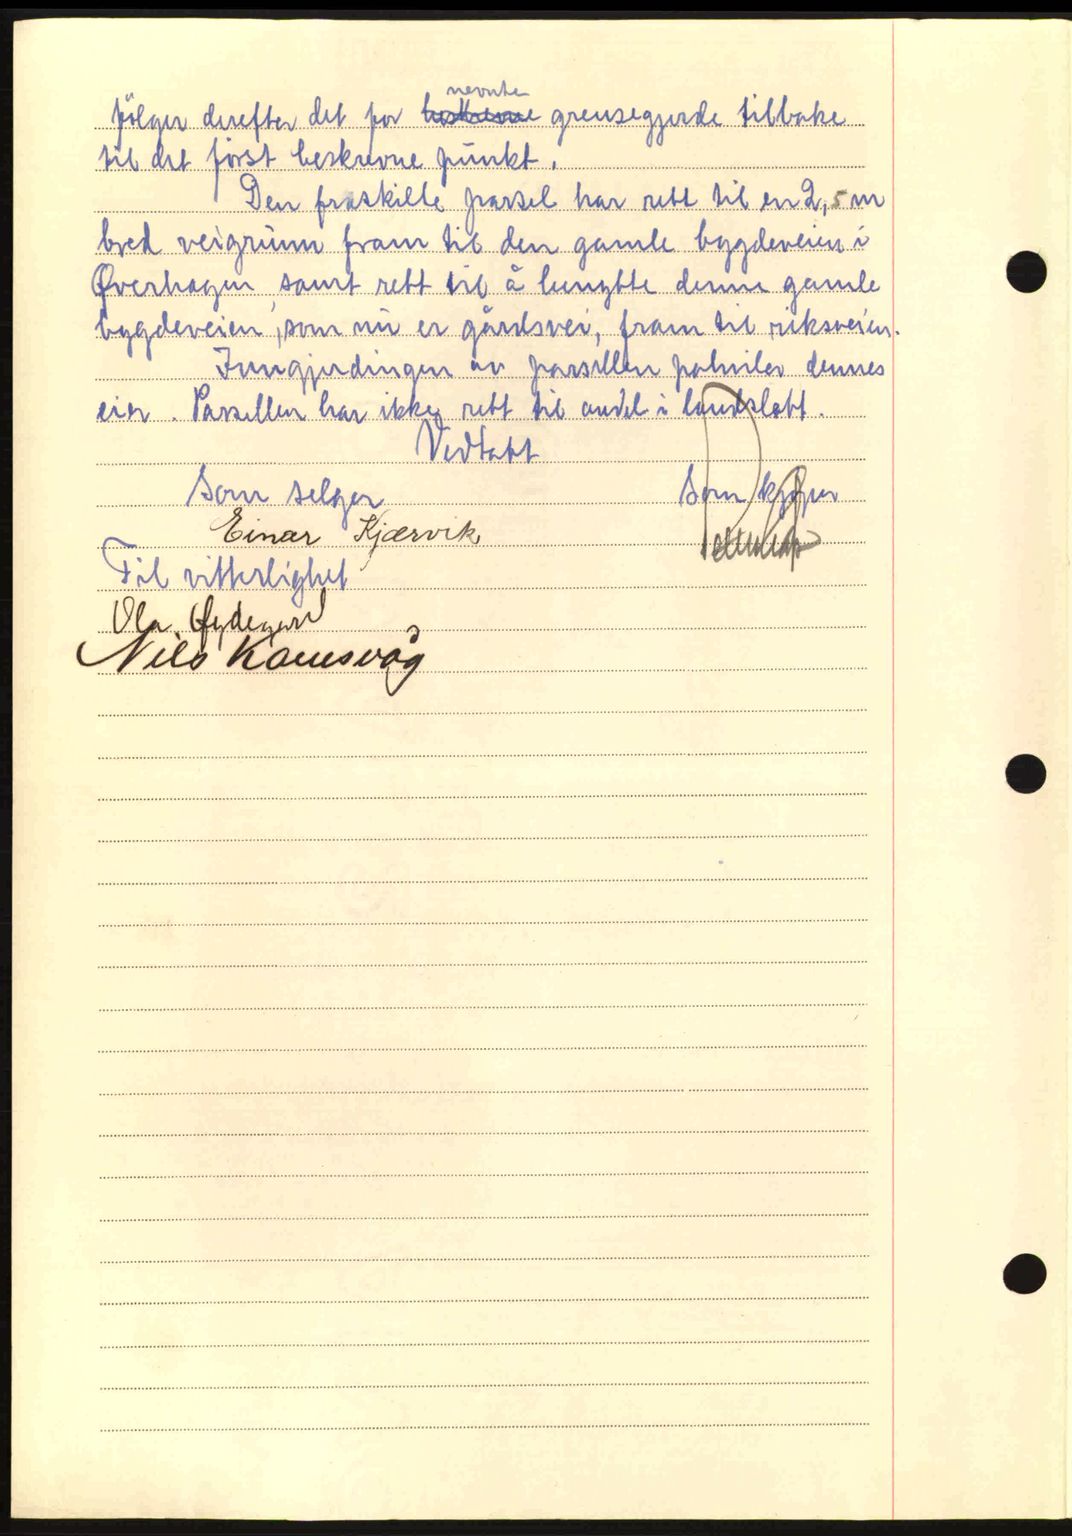 følger derefter det før beskrevne nevnte grensegjerde tilbake
til det først beskrevne punkt.
Den fraskilte parsel har rett til en 2,5 m
bred veigrunn fram til den gamle bygdeveien i
Øverhagen, samt rett til å benytte denne gamle
bygdeveien, som nu er gårdsvei, fram til riksveien.
Inngjerdingen av parsellen påhviler dennes
eier. Parsellen har ikke rett til andel i landslott.
Vedtatt
Som selger Som kjøper
Einar Kjærvik
Til vitterlighet
Ola Øydegard
Nils Kanesvåg